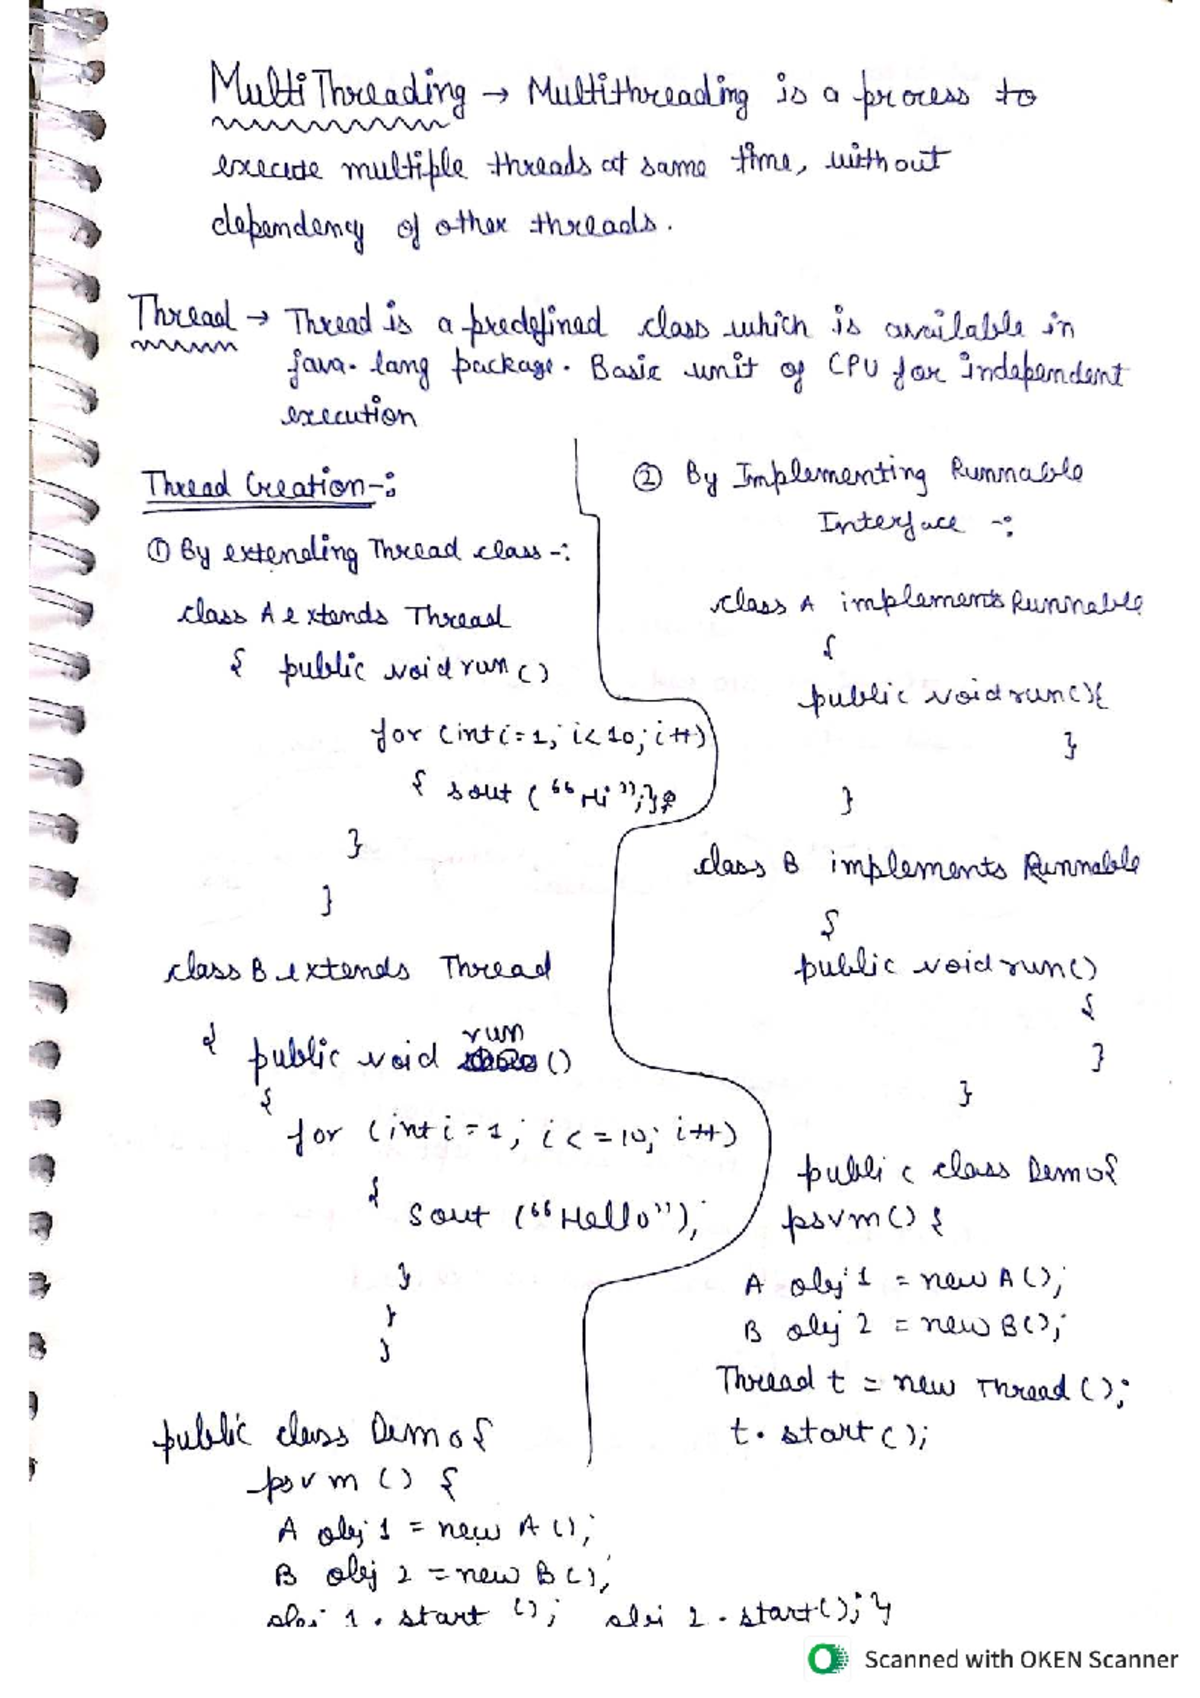 MultiThreading → Multithreading is a process to
execute multiple threads at same time, without
dependency of other threads.
Thread → Thread is a predefined class which is available in
java. lang package. Basic unit of CPU for independent
execution
Thread Creation-:
① By extending Thread class -:
class A extends Thread
{ public void run ()
for (int i=1; i<10; i++)
{ sout ( "Hi");}
}
}
class B extends Thread
{ public void run ()
{
for (int i=1; i<=10; i++)
{
Sout ("Hello");
}
}
}
public class Demo{
psvm () {
A obj 1 = new A ();
B obj 2 = new B ();
obj 1 . start (); obj 2 . start(); }
② By Implementing Runnable
Interface -:
class A implements Runnable
{
public void run(){
}
}
class B implements Runnable
{
public void run()
{
}
}
public class Demo{
psvm() {
A obj 1 = new A ();
B obj 2 = new B();
Thread t = new Thread ();
t. start ();
Scanned with OKEN Scanner